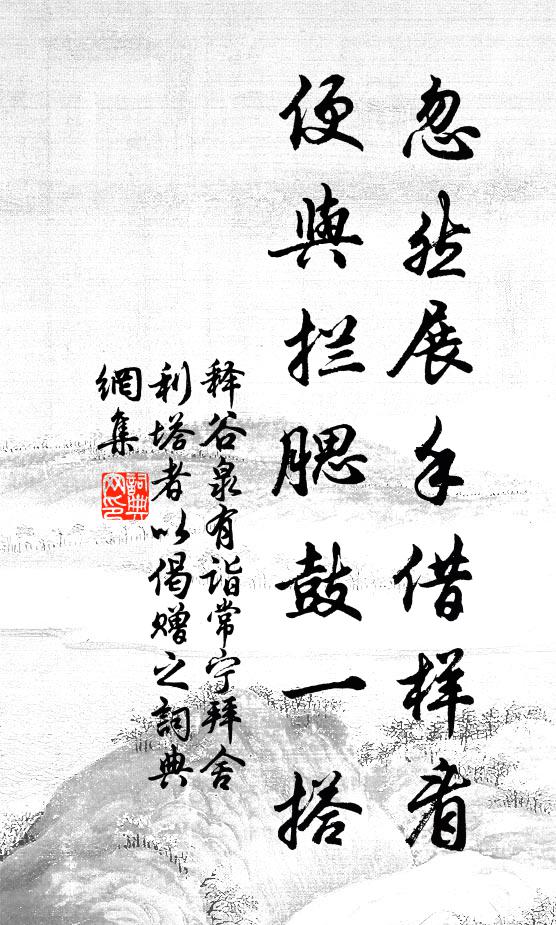 忽然展手借样看
便與拦腮鼓一搭
释谷泉有诣常宁拜舍
利塔者以偈赠之詞典
網集
詞典
网印